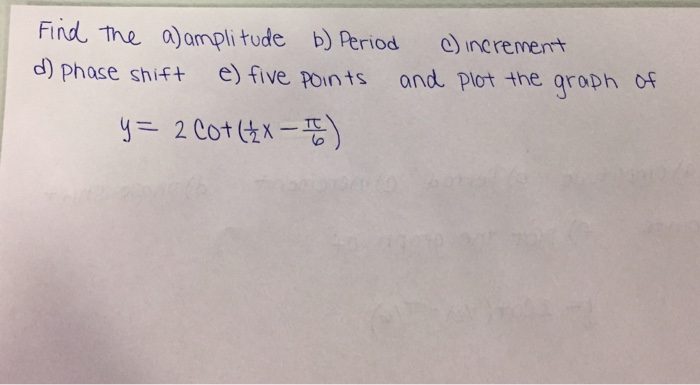 Find the a) amplitude b) Period c) increment
d) phase shift e) five points and plot the graph of
y = 2 Cot (½x - π/6)